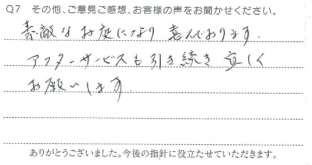 Q7 その他、ご意見ご感想、お客様の声をお聞かせください。
素敵なお庭になり 喜んでおります。
アフターサービスも引き続き宜しく
お願いします
ありがとうございました。今後の指針に役立たせていただきます。